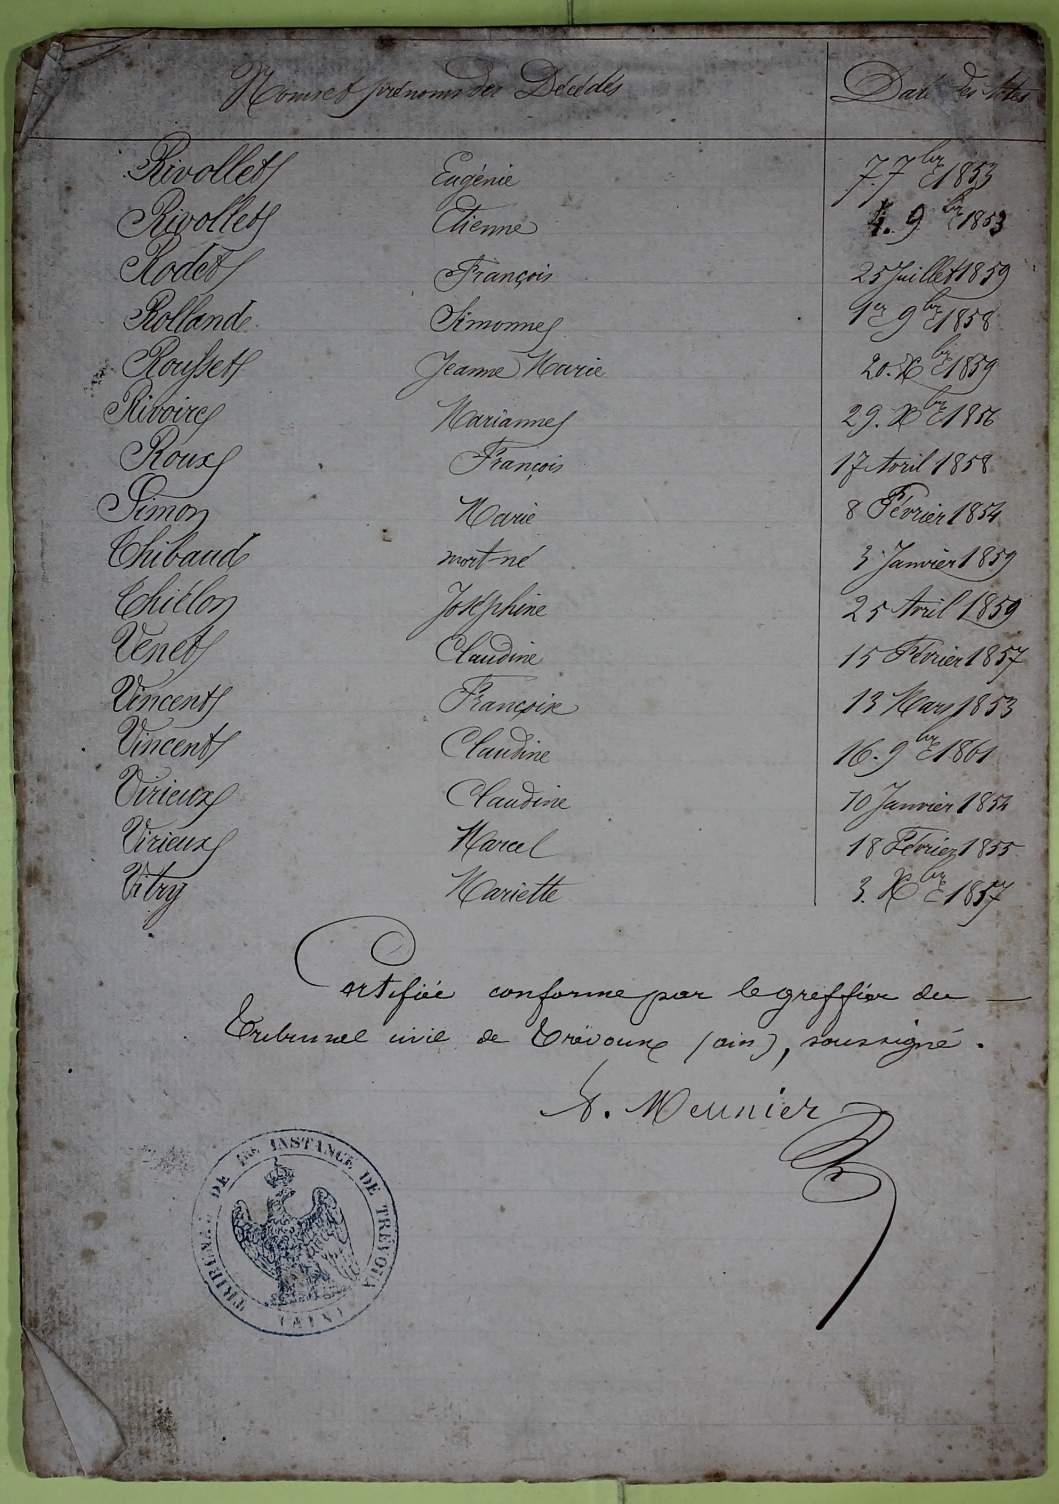 Noms et prénoms des Décédés Date des Actes
Rivollet Eugénie 7. 7bre 1853
Rivollet Etienne 4. 9bre 1853
Rodet François 25 Juillet 1859
Rolland Simonne 1er 9bre 1858
Rousset Jeanne Marie 20. Xbre 1859
Rivoire Marianne 29. Xbre 1856
Roux François 17 Avril 1858
Simon Marie 8 Février 1854
Thibaud mort-né 3 Janvier 1859
Thiélon Joséphine 25 Avril 1859
Venet Claudine 15 Février 1857
Vincent Françoise 13 Mars 1853
Vincent Claudine 16. 9bre 1861
Virieux Claudine 10 Janvier 1854
Virieux Marcel 18 Février 1855
Vitry Mariette 3. Xbre 1857
Certifiée conforme par le greffier du
Tribunal civil de Trévoux (ain), soussigné.
Meunier
TRIBUNAL DE 1RE INSTANCE DE TRÉVOUX
(AIN)